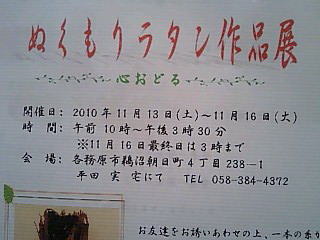 ぬくもりラタン作品展
心おどる
開催日: 2010年11月13日(土)〜11月16日(火)
時 間: 午前10時〜午後3時30分
※11月16日最終日は3時まで
会 場: 各務原市鵜沼朝日町4丁目238−1
平田 実 宅にて TEL 058-384-4372
お友達をお誘いあわせの上、一本の糸が